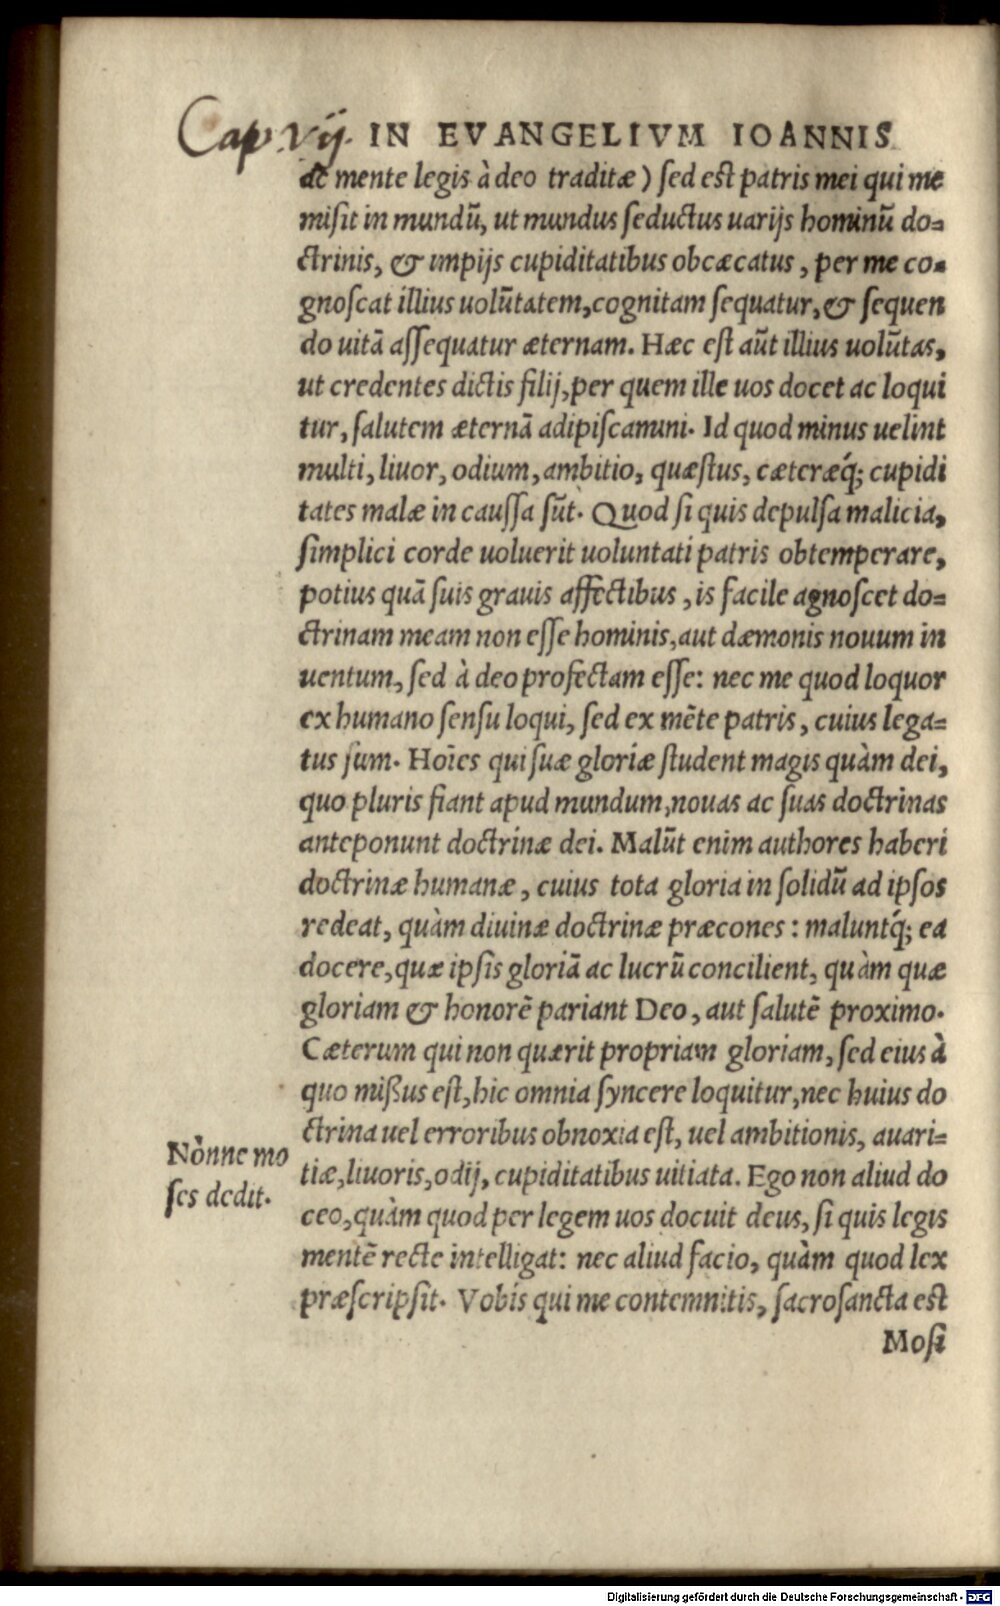 Cap. vij. IN EVANGELIVM IOANNIS
de mente legis à deo traditæ) sed est patris mei qui me
misit in mundū, ut mundus seductus uarijs hominū do=
ctrinis, & impijs cupiditatibus obcæcatus, per me co=
gnoscat illius uolūtatem, cognitam sequatur, & sequen
do uitā assequatur æternam. Hæc est aūt illius uolūtas,
ut credentes dictis filij, per quem ille uos docet ac loqui
tur, salutem æternā adipiscamini. Id quod minus uelint
multi, liuor, odium, ambitio, quæstus, cæteræq́; cupidi
tates malæ in caussa sūt. Quod si quis depulsa malicia,
simplici corde uoluerit uoluntati patris obtemperare,
potius quā suis grauis affectibus, is facile agnoscet do=
ctrinam meam non esse hominis, aut dæmonis nouum in
uentum, sed à deo profectam esse: nec me quod loquor
ex humano sensu loqui, sed ex mēte patris, cuius lega=
tus sum. Hoīes qui suæ gloriæ student magis quàm dei,
quo pluris fiant apud mundum, nouas ac suas doctrinas
anteponunt doctrinæ dei. Malūt enim authores haberi
doctrinæ humanæ, cuius tota gloria in solidū ad ipsos
redeat, quàm diuinæ doctrinæ præcones: maluntq́; ea
docere, quæ ipsis gloriā ac lucrū concilient, quàm quæ
gloriam & honorē pariant Deo, aut salutē proximo.
Cæterum qui non quærit propriam gloriam, sed eius à
quo mißus est, hic omnia syncere loquitur, nec huius do
ctrina uel erroribus obnoxia est, uel ambitionis, auari=
Nònne mo
ses dedit.
tiæ, liuoris, odij, cupiditatibus uitiata. Ego non aliud do
ceo, quàm quod per legem uos docuit deus, si quis legis
mentē recte intelligat: nec aliud facio, quàm quod lex
præscripsit. Vobis qui me contemnitis, sacrosancta est
Mosi
Digitalisierung gefördert durch die Deutsche Forschungsgemeinschaft - DFG